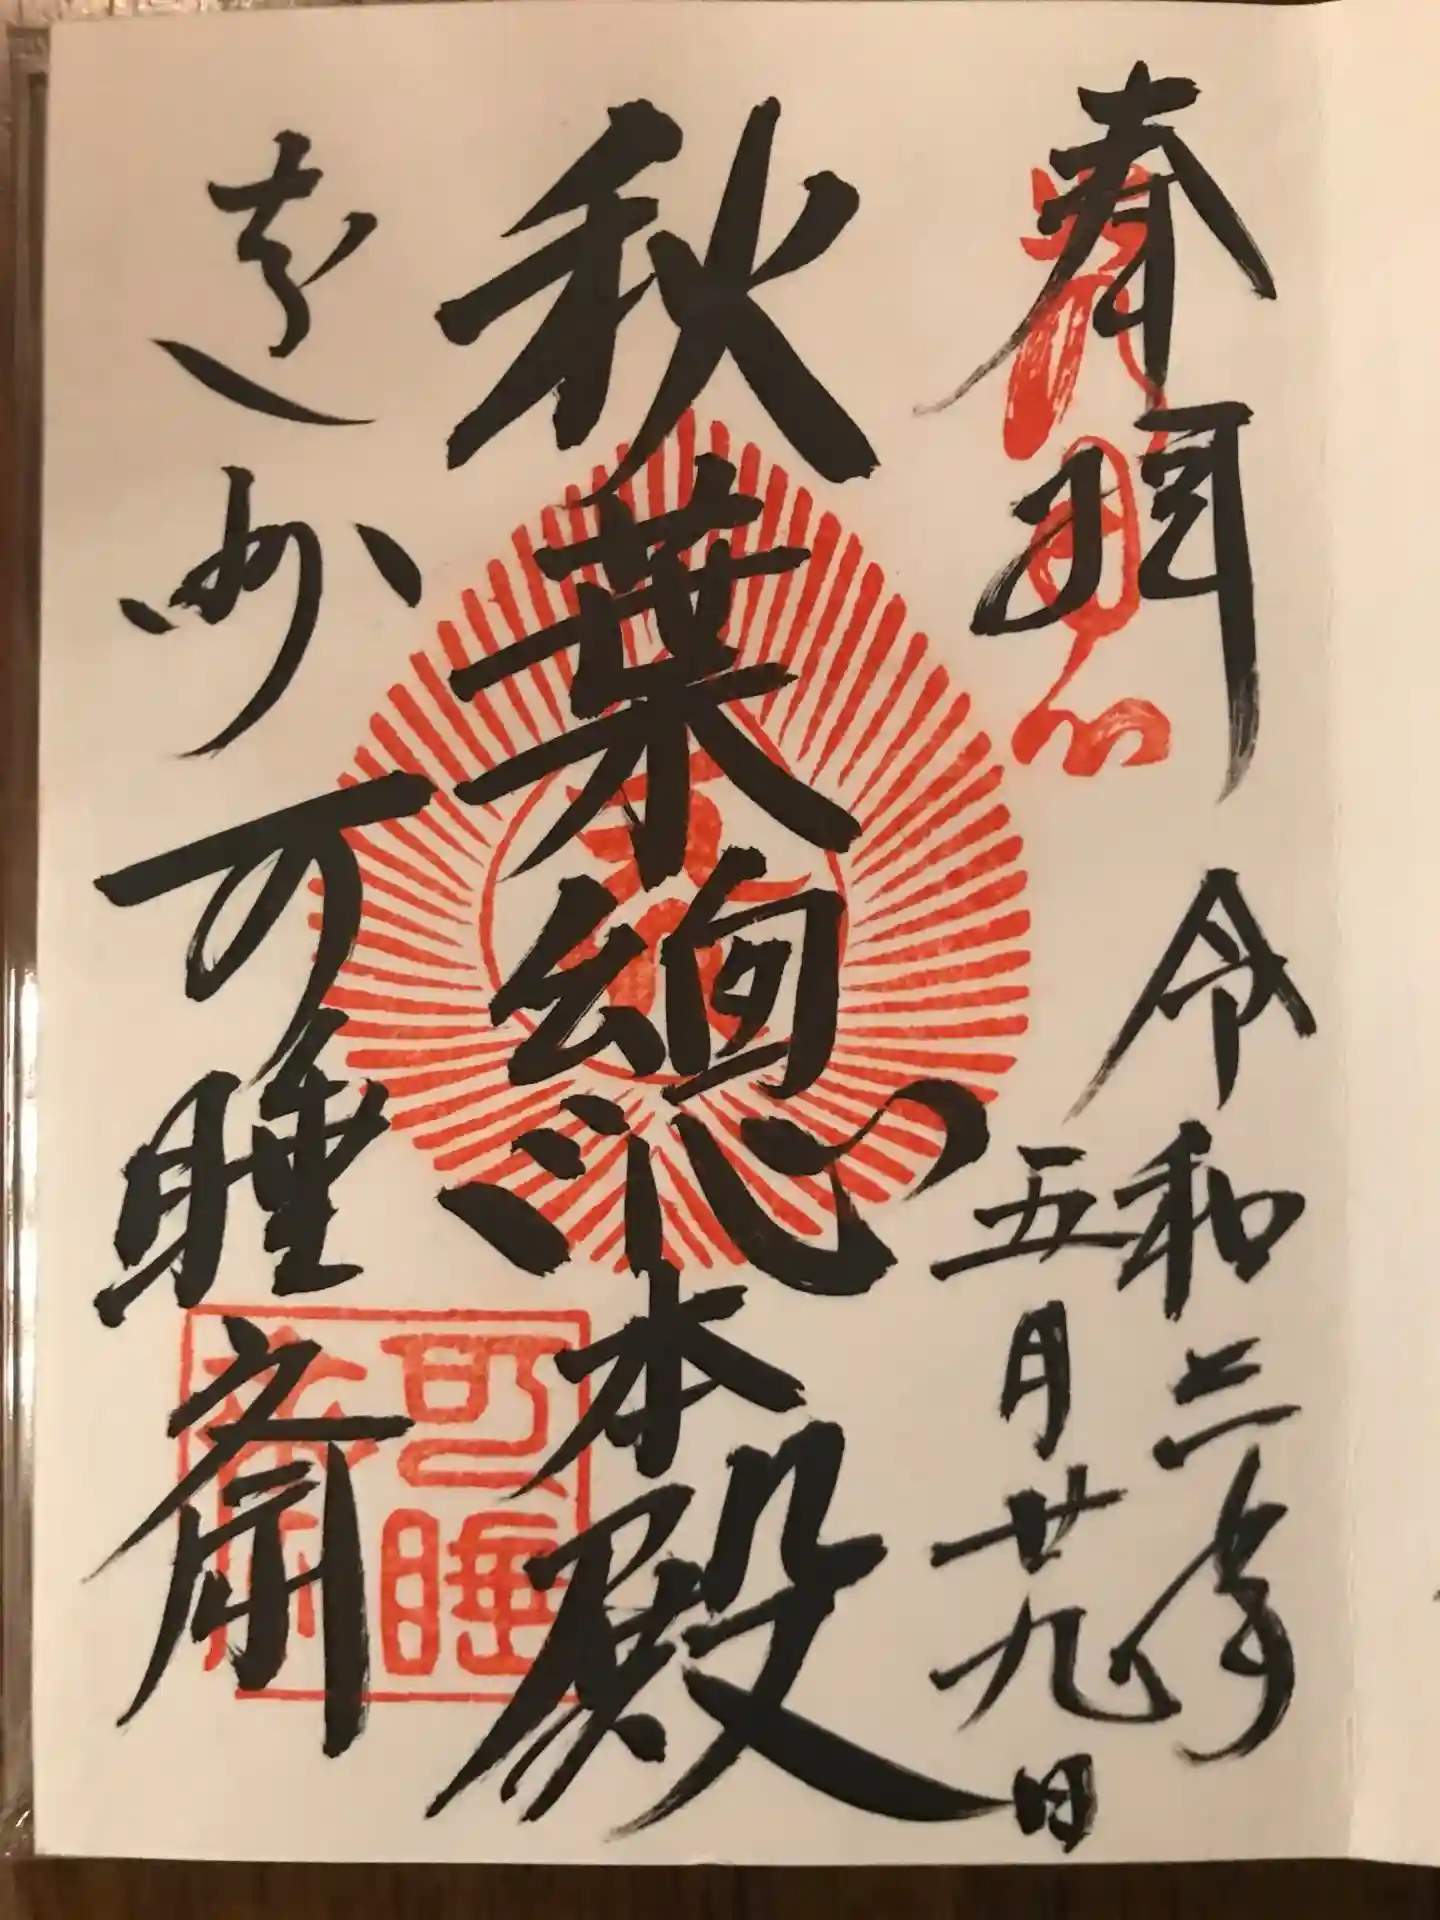 奉拝
令和三年
五月廿九日
秋葉總本殿
遠州
可睡斎
可睡